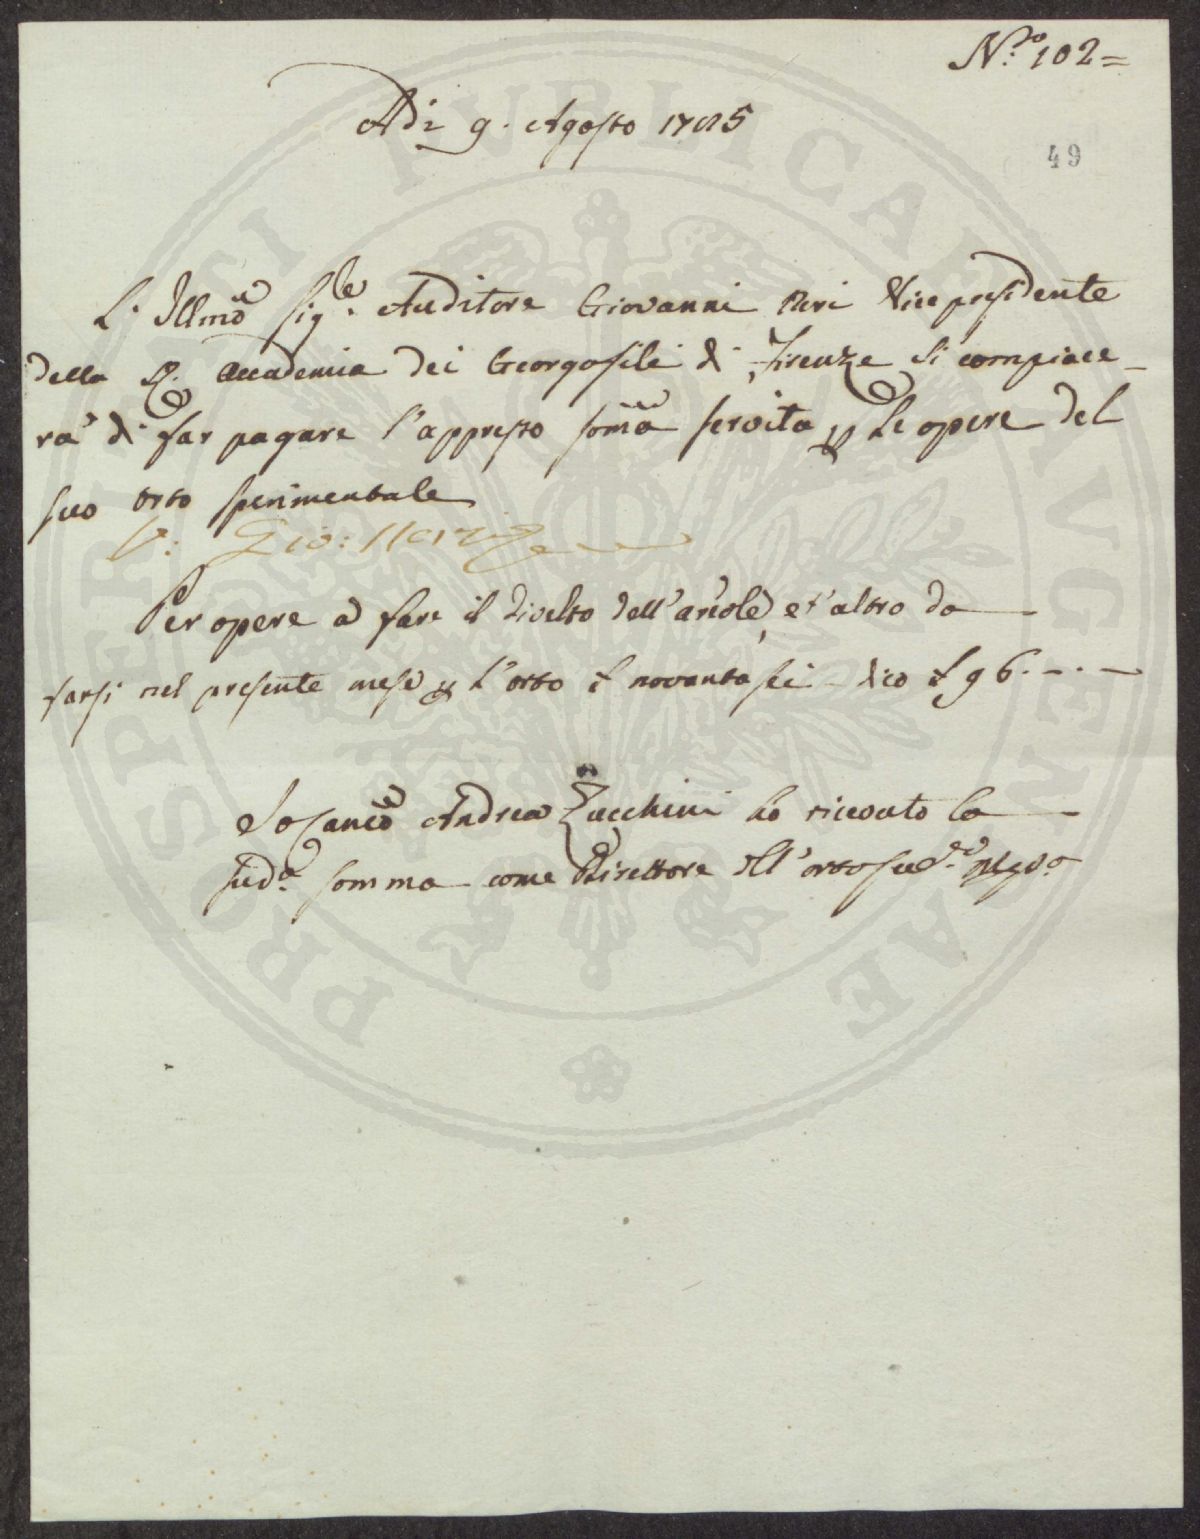 N.ro 102=
Adi 9. Agosto 1785
49
L'Illmo Sig.re Auditore Giovanni Neri Vice presidente
della R. Accademia dei Georgofili di Firenze si compiace-
rà di far pagare l'appresso somã servita p le opere del
suo orto sperimentale
V: Gio: Neri
Per opere a fare il divelto dell'ariole, e l'altro da
farsi nel presente mese p l'orto £ novantasei dico £ 96.-.-
Io Canco Andrea Zucchini ho ricevuto la
sud.a somma come Direttore dell'orto sud.o
PROSPERITATI PUBLICAE AUGENDAE